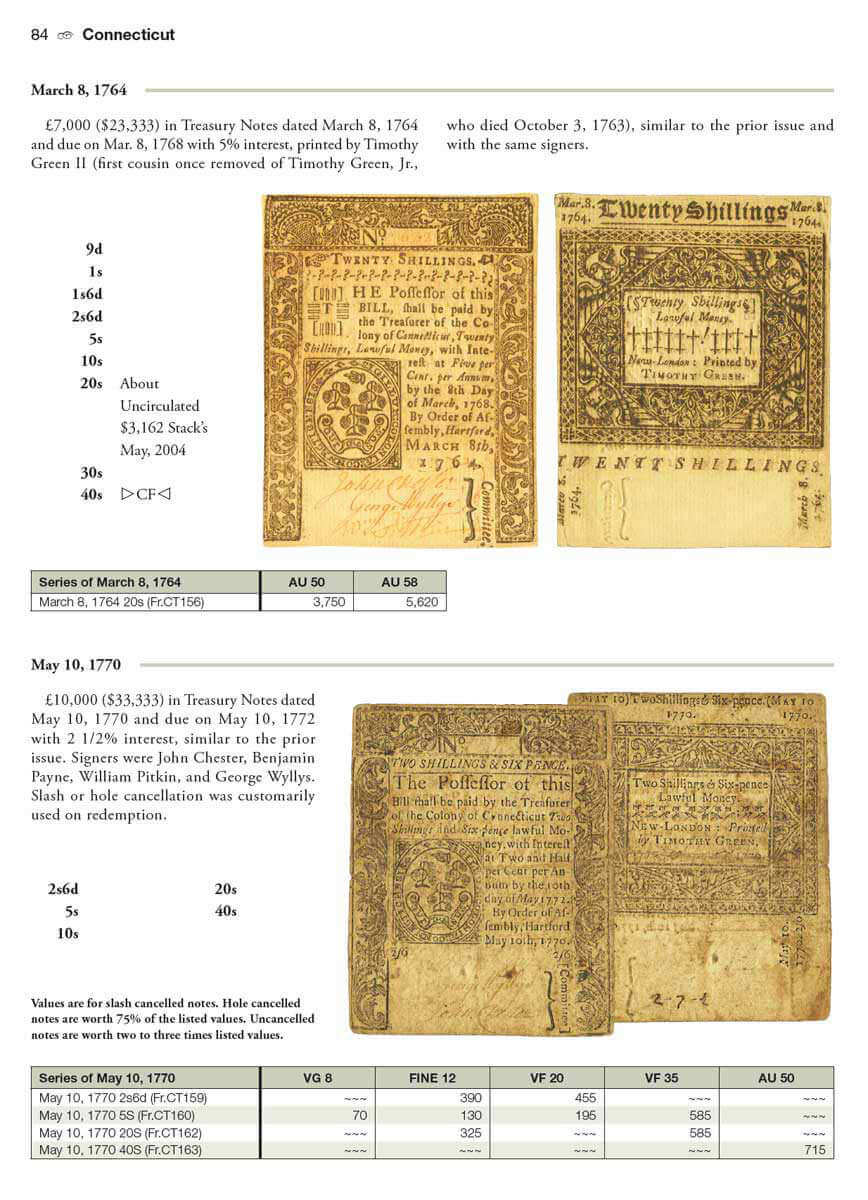 84 Connecticut
March 8, 1764
£7,000 ($23,333) in Treasury Notes dated March 8, 1764
and due on Mar. 8, 1768 with 5% interest, printed by Timothy
Green II (first cousin once removed of Timothy Green, Jr.,
who died October 3, 1763), similar to the prior issue and
with the same signers.
9d
1s
1s6d
2s6d
5s
10s
20s About
Uncirculated
$3,162 Stack's
May, 2004
30s
40s ▷CF◁
No
TWENTY SHILLINGS.
THE Possessor of this
BILL, shall be paid by
the Treasurer of the Co-
lony of Connecticut, Twenty
Shillings, Lawful Money, with Inte-
rest at Five per
Cent. per Annum,
by the 8th Day
of March, 1768.
By Order of As-
sembly, Hartford,
MARCH 8th,
1764.
Committee.
Mar. 8. Twenty Shillings Mar. 8.
1764. 1764.
Twenty Shillings
Lawful Money.
New-London: Printed by
TIMOTHY GREEN.
TWENTY SHILLINGS
March 8.
1764.
March 8.
1764.
Series of March 8, 1764 AU 50 AU 58
March 8, 1764 20s (Fr.CT156) 3,750 5,620
May 10, 1770
£10,000 ($33,333) in Treasury Notes dated
May 10, 1770 and due on May 10, 1772
with 2 1/2% interest, similar to the prior
issue. Signers were John Chester, Benjamin
Payne, William Pitkin, and George Wyllys.
Slash or hole cancellation was customarily
used on redemption.
2s6d 20s
5s 40s
10s
Values are for slash cancelled notes. Hole cancelled
notes are worth 75% of the listed values. Uncancelled
notes are worth two to three times listed values.
No
TWO SHILLINGS & SIX PENCE.
The Possessor of this
Bill shall be paid by the Treasurer
of the Colony of Connecticut Two
Shillings and Six-pence lawful Mo-
ney, with Interest
at Two and Half
per Cent per An-
num by the 10th
day of May 1772.
By Order of As-
sembly, Hartford
May 10th, 1770.
2/6 2/6
Committee
MAY 10) Two Shillings & Six-pence. (MAY 10
1770. 1770.
Two Shillings & Six-pence
Lawful Money.
NEW-LONDON: Printed
by TIMOTHY GREEN.
May 10.
1770. 2/6
2-7-2
Series of May 10, 1770 VG 8 FINE 12 VF 20 VF 35 AU 50
May 10, 1770 2s6d (Fr.CT159) ~~~ 390 455 ~~~ ~~~
May 10, 1770 5S (Fr.CT160) 70 130 195 585 ~~~
May 10, 1770 20S (Fr.CT162) ~~~ 325 ~~~ 585 ~~~
May 10, 1770 40S (Fr.CT163) ~~~ ~~~ ~~~ ~~~ 715